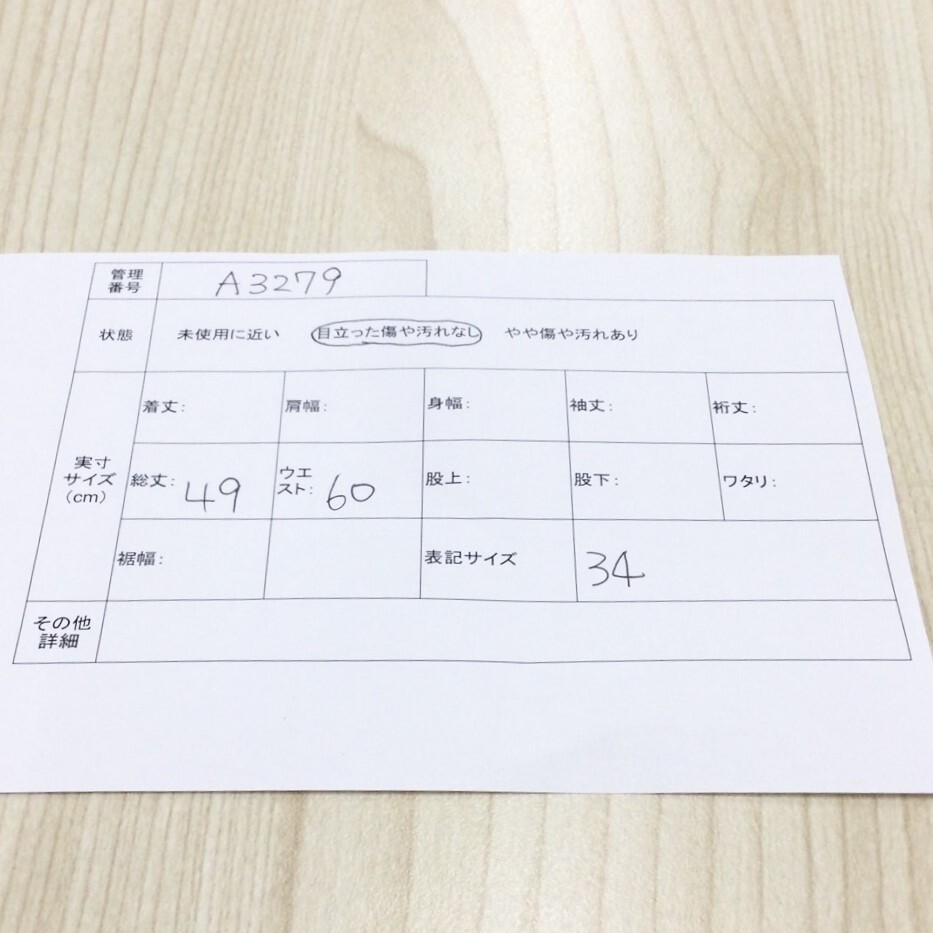 管理
番号
A3279
状態
未使用に近い 目立った傷や汚れなし やや傷や汚れあり
実寸
サイズ
(cm)
着丈: 肩幅: 身幅: 袖丈: 裄丈:
総丈: 49 ウエ
スト: 60 股上: 股下: ワタリ:
裾幅: 表記サイズ 34
その他
詳細